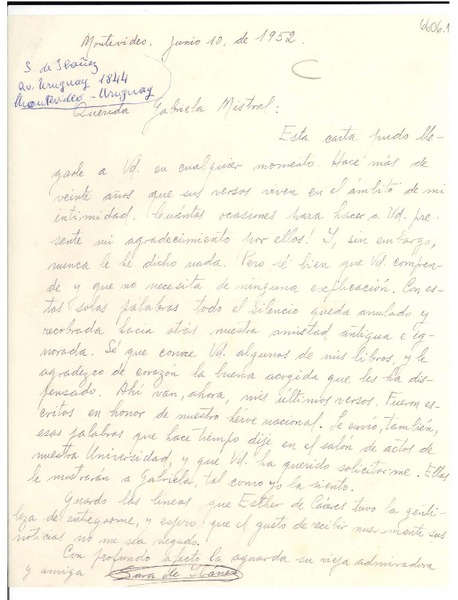 6606.1
Montevideo. Junio 10, de 1952.
S. de Ibáñez
Av. Uruguay 1844
Montevideo - Uruguay
Querida Gabriela Mistral:
Esta carta pudo lle-
garle a Vd. en cualquier momento. Hace más de
veinte años que sus versos viven en el ámbito de mi
intimidad. ¡Cuántas ocasiones para hacer a Vd. pre-
sente mi agradecimiento por ellos! Y, sin embargo,
nunca le he dicho nada. Pero sé bien que Vd. compren-
de y que no necesita de ninguna explicación. Con es-
tas solas palabras todo el silencio queda anulado y
recobrada hacia atrás nuestra amistad antigua e ig-
norada. Sé que conoce Vd. algunos de mis libros, y le
agradezco de corazón la buena acogida que les ha dis-
pensado. Ahí van, ahora, mis últimos versos. Fueron es-
critos en honor de nuestro héroe nacional. Le envío, también,
esas palabras que hace tiempo dije en el salón de actos de
nuestra Universidad, y que Vd. ha querido solicitarme. Ellas
le mostrarán a Gabriela, tal como yo la siento.
Guardo las líneas que Esther de Cáceres tuvo la genti-
leza de entregarme, y espero que el gusto de recibir nuevamente sus
noticias no me sea negado.
Con profundo afecto la aguarda su vieja admiradora
y amiga Sara de Ibáñez